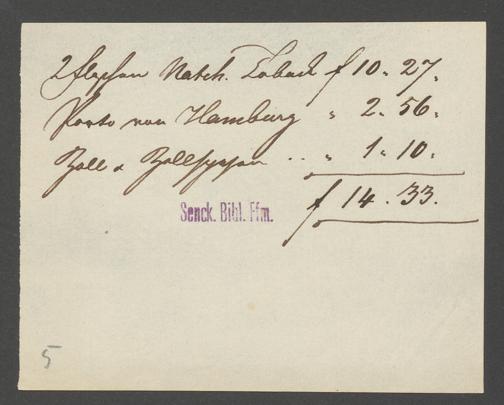 2 Flaschen Natch. Taback f 10. 27.
Porto von Hamburg " 2. 56.
Zoll & Zollspesen .. " 1. 10.
f 14. 33.
Senck. Bibl. Ffm.
5